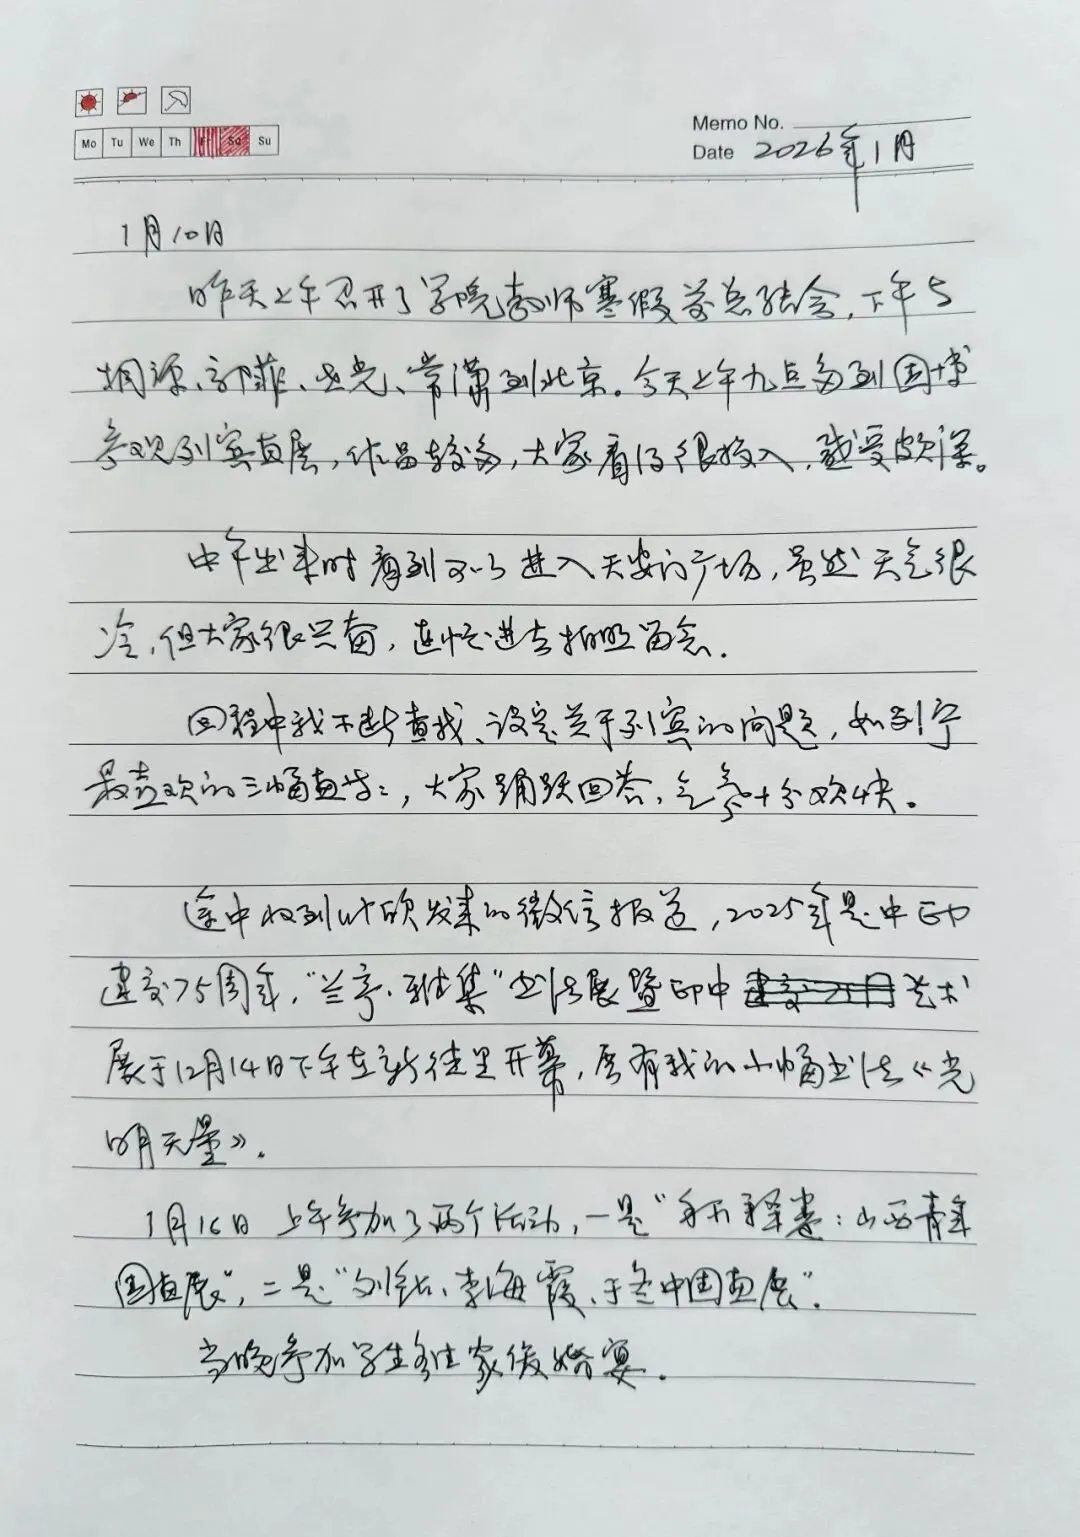 Mo Tu We Th Fr Sa Su
Memo No.
Date 2026年1月
1月10日
昨天上午召开了学院教师寒假前总结会，下午与
桐源、郭菲、世光、常潇到北京。今天上午九点多到国博
参观列宾画展，作品较多，大家看得很投入，感受颇深。
中午出来时看到可以进入天安门广场，虽然天气很
冷，但大家很兴奋，连忙进去拍照留念．
回程中我不断查找、设定关于列宾的问题，如列宁
最喜欢的三幅画等，大家踊跃回答，气氛十分欢快。
途中收到叶欣发来的微信报道，2025年是中印
建交75周年，“兰亭·雅集”书法展暨印中艺术
展于12月14日下午在新德里开幕，展有我的小幅书法《光
明无量》．
1月16日 上午参加了两个活动，一是“：山西青年
国画展”，二是“刘钻、李海霞、于冬中国画展”．
当晚参加学生家俊婚宴．